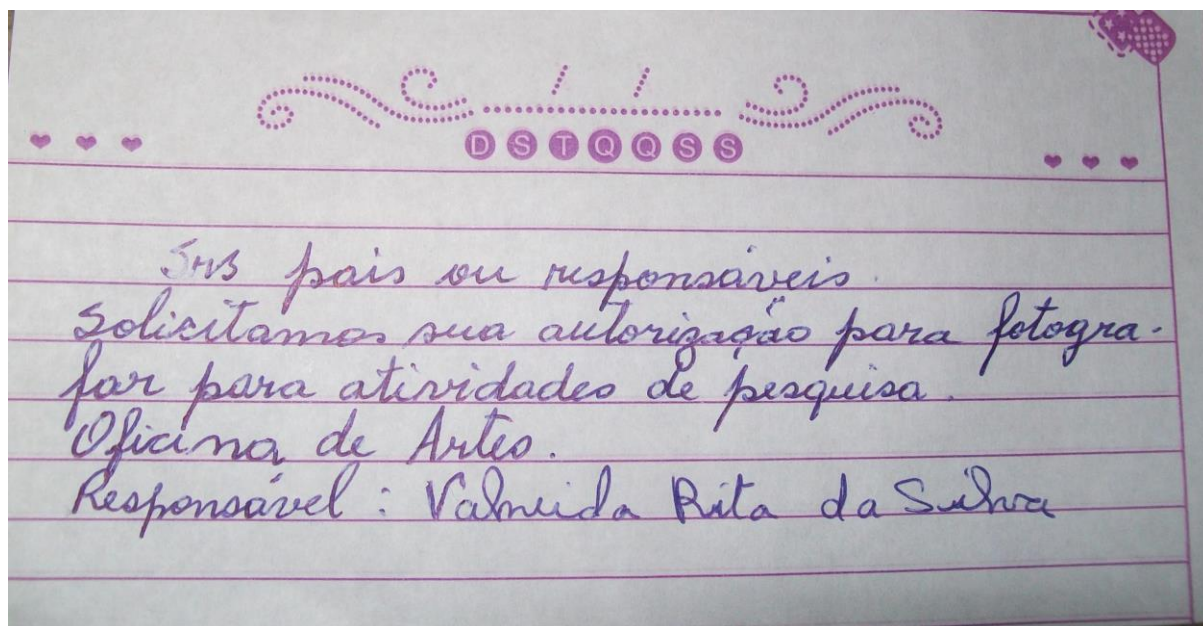 / /
D S T Q Q S S
Srs pais ou responsáveis.
Solicitamos sua autorização para fotogra-
far para atividades de pesquisa.
Oficina de Artes.
Responsável: Valmeida Rita da Silva